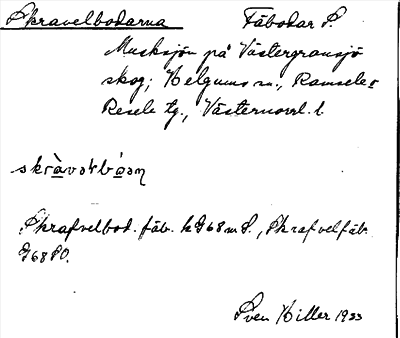 Skravelbodarna Fäbodar S.
Musksjön på Västergransjö
skog; Helgums sn., Ramsele o
Resele tg., Västernorrl. l.
Skrafvelbod. fäb. k G68 m S., Skrafvelfäb.
G68 SO.
Sven Hiller 1933